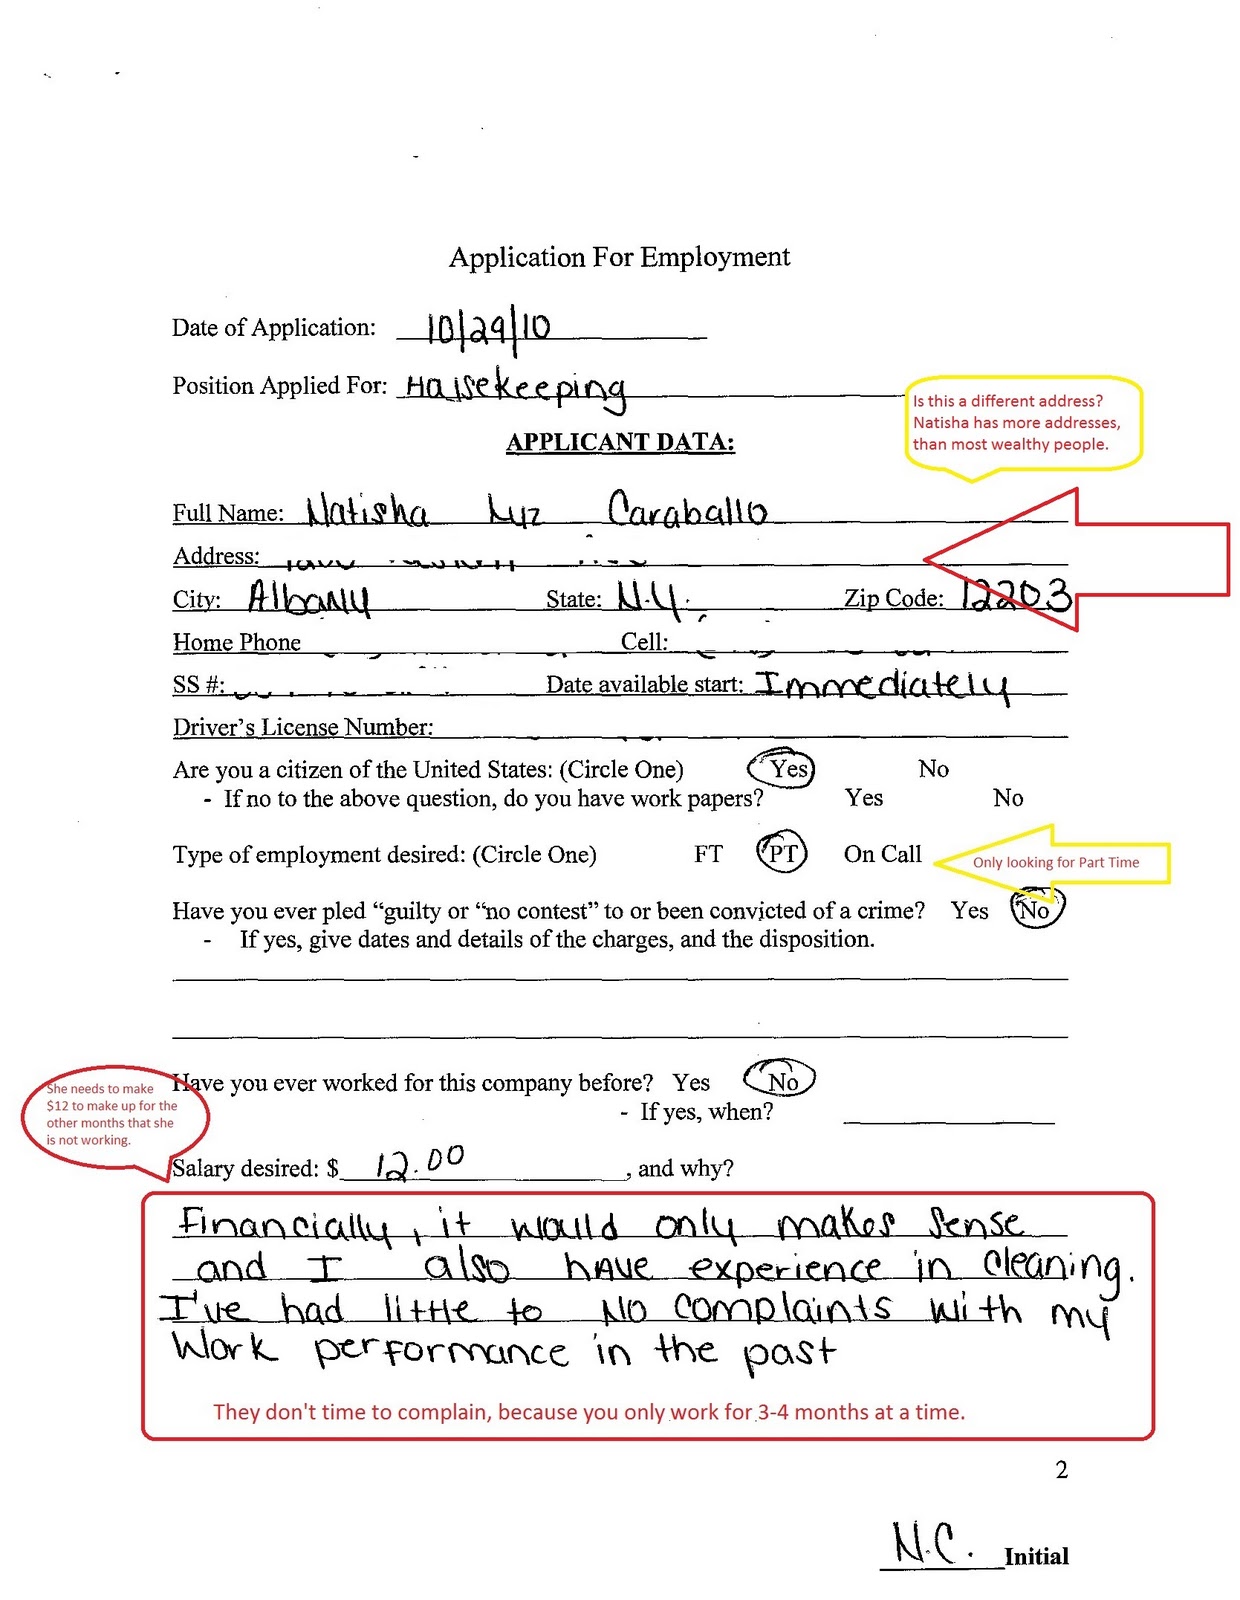 Application For Employment
Date of Application: 10/29/10
Position Applied For: Housekeeping
Is this a different address?
Natisha has more addresses,
than most wealthy people.
APPLICANT DATA:
Full Name: Natisha Luz Caraballo
Address:
City: Albany State: N.Y. Zip Code: 12203
Home Phone Cell:
SS #: Date available start: Immediately
Driver's License Number:
Are you a citizen of the United States: (Circle One) Yes No
- If no to the above question, do you have work papers? Yes No
Type of employment desired: (Circle One) FT PT On Call
Only looking for Part Time
Have you ever pled “guilty or “no contest” to or been convicted of a crime? Yes No
- If yes, give dates and details of the charges, and the disposition.
She needs to make
$12 to make up for the
other months that she
is not working.
Have you ever worked for this company before? Yes No
- If yes, when?
Salary desired: $ 12.00, and why?
Financially, it would only makes sense
and I also have experience in cleaning.
I've had little to no complaints with my
work performance in the past
They don't time to complain, because you only work for 3-4 months at a time.
2
N.C. Initial